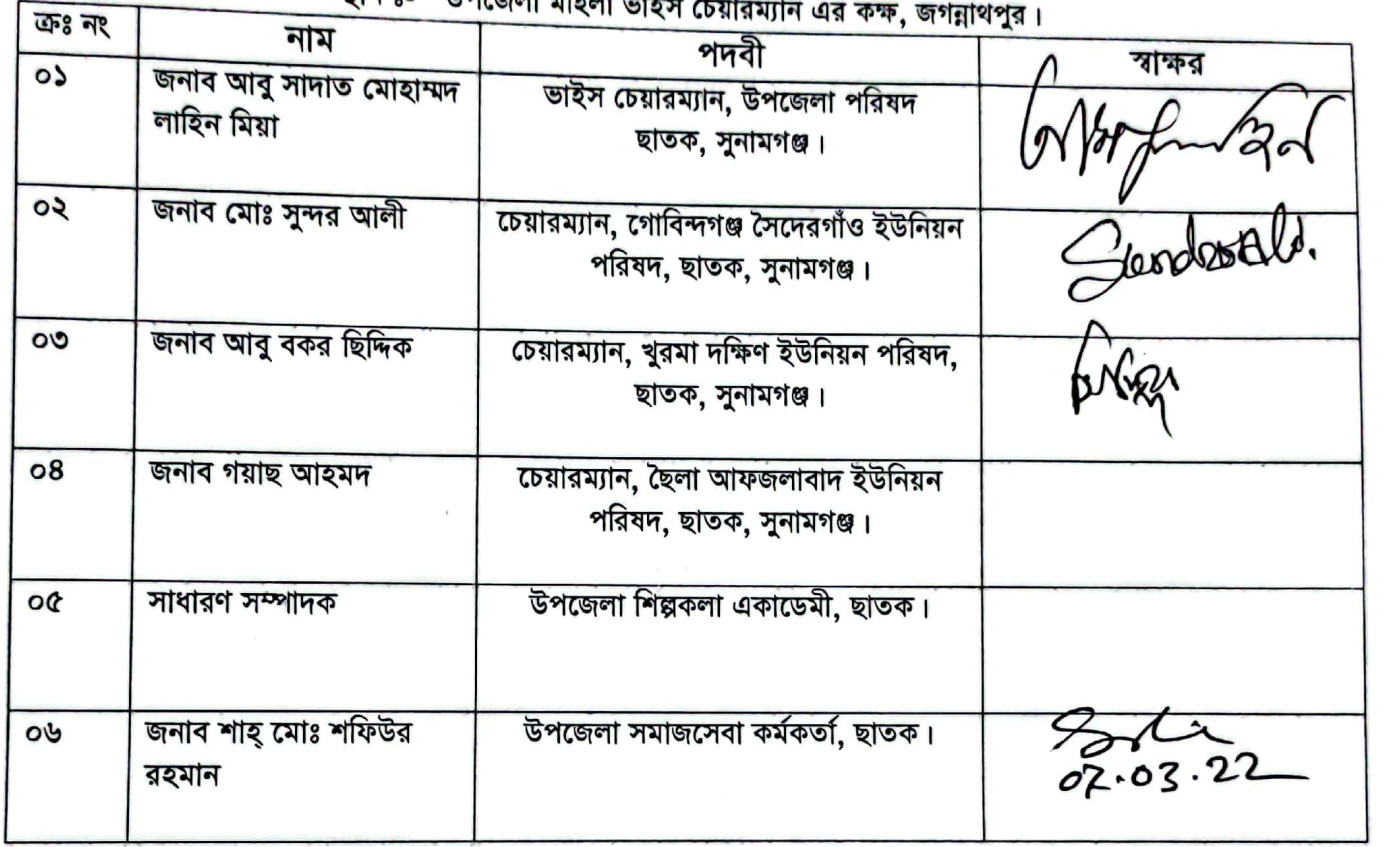 উপজেলা মহিলা ভাইস চেয়ারম্যান এর কক্ষ, জগন্নাথপুর।
ক্রঃ নং নাম পদবী স্বাক্ষর
০১ জনাব আবু সাদাত মোহাম্মদ ভাইস চেয়ারম্যান, উপজেলা পরিষদ
লাহিন মিয়া ছাতক, সুনামগঞ্জ।
০২ জনাব মোঃ সুন্দর আলী চেয়ারম্যান, গোবিন্দগঞ্জ সৈদেরগাঁও ইউনিয়ন
পরিষদ, ছাতক, সুনামগঞ্জ।
০৩ জনাব আবু বকর ছিদ্দিক চেয়ারম্যান, খুরমা দক্ষিণ ইউনিয়ন পরিষদ,
ছাতক, সুনামগঞ্জ।
০৪ জনাব গয়াছ আহমদ চেয়ারম্যান, ছৈলা আফজলাবাদ ইউনিয়ন
পরিষদ, ছাতক, সুনামগঞ্জ।
০৫ সাধারণ সম্পাদক উপজেলা শিল্পকলা একাডেমী, ছাতক।
০৬ জনাব শাহ্ মোঃ শফিউর উপজেলা সমাজসেবা কর্মকর্তা, ছাতক।
রহমান 07.03.22